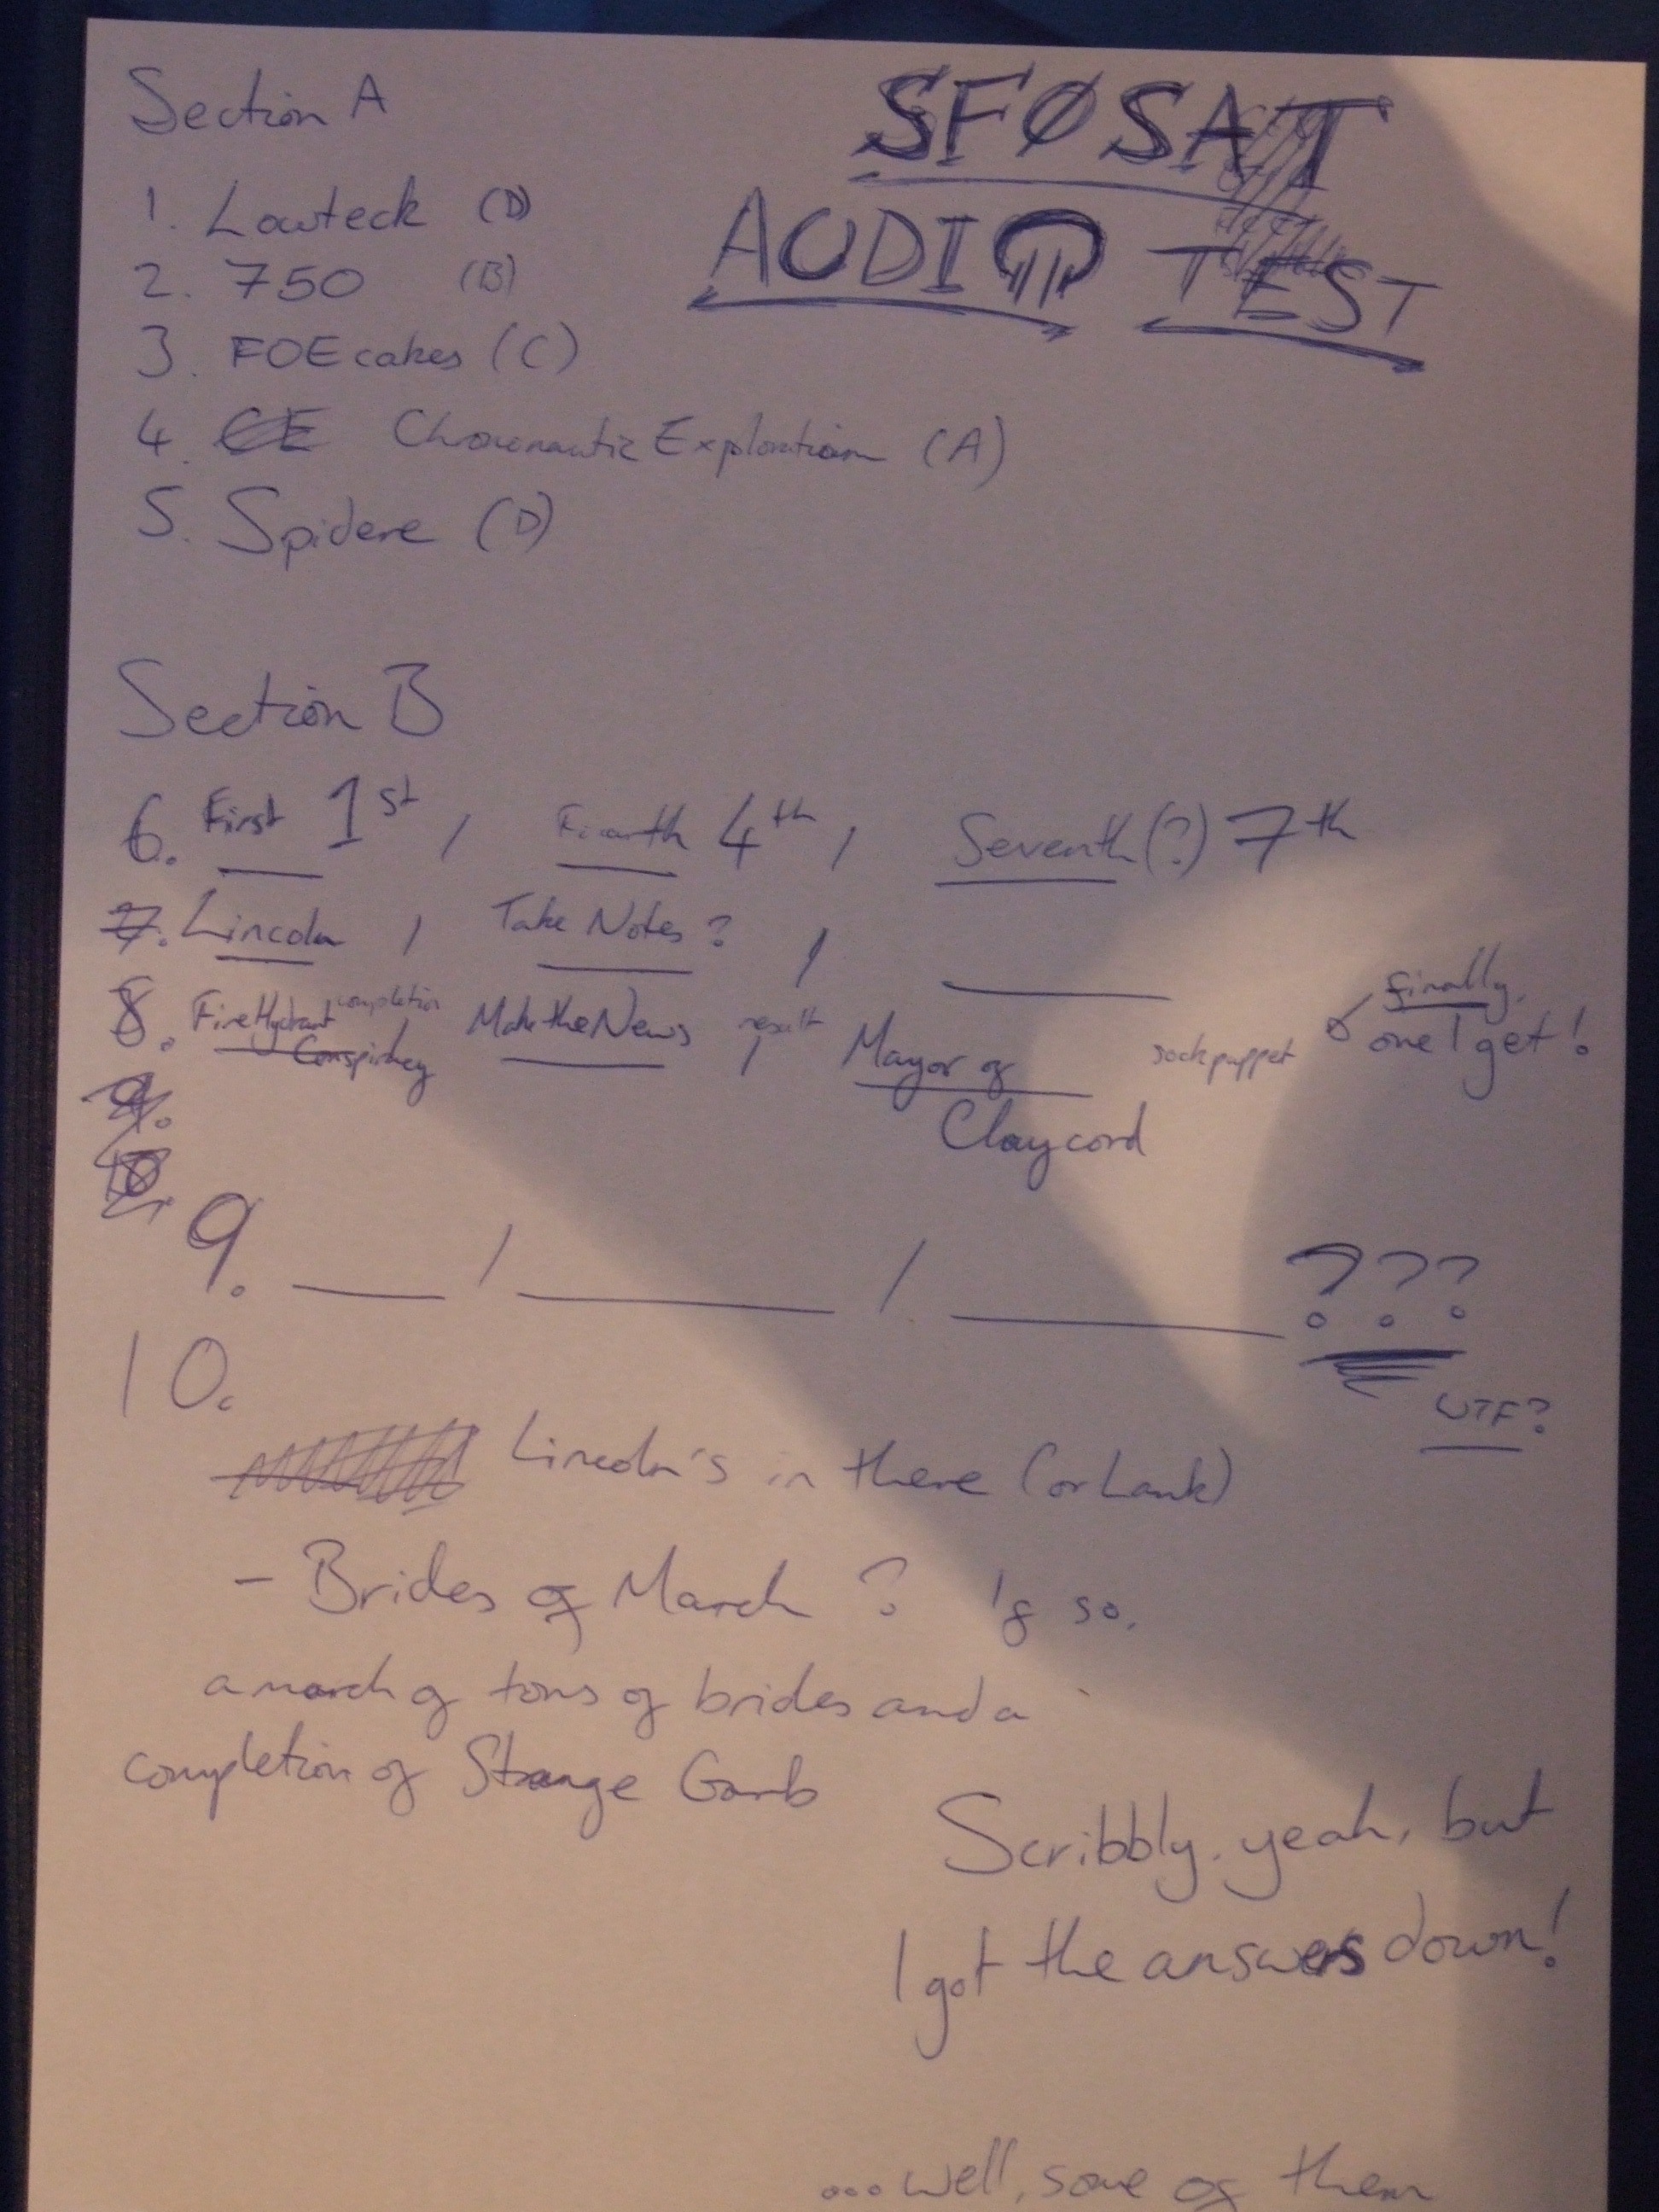 Section A
SFØSAT
AUDIO TEST
1. Lowteck (D)
2. 750 (B)
3. FOEcakes (C)
4. CE Chrononautic Exploration (A)
5. Spidere (D)
Section B
6. First 1st, Fourth 4th, Seventh(?) 7th
7. Lincoln, Take Notes?,
8. FireHydrant completion, MaketheNews result, Mayor of sockpuppet finally, one I get!
Conspiracy
Claycord
9.
10.
9. , , ???
WTF?
10.
Lincoln's in there (or Lank)
- Brides of March? If so,
a march of tons of brides and a
completion of Strange Garb
Scribbly, yeah, but
I got the answers down!
...well, some of them